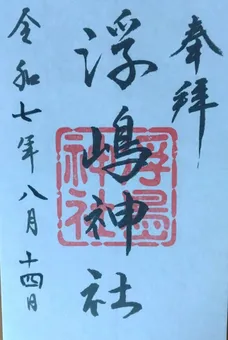 奉拝
浮嶋神社
浮島神社
令和七年八月十四日